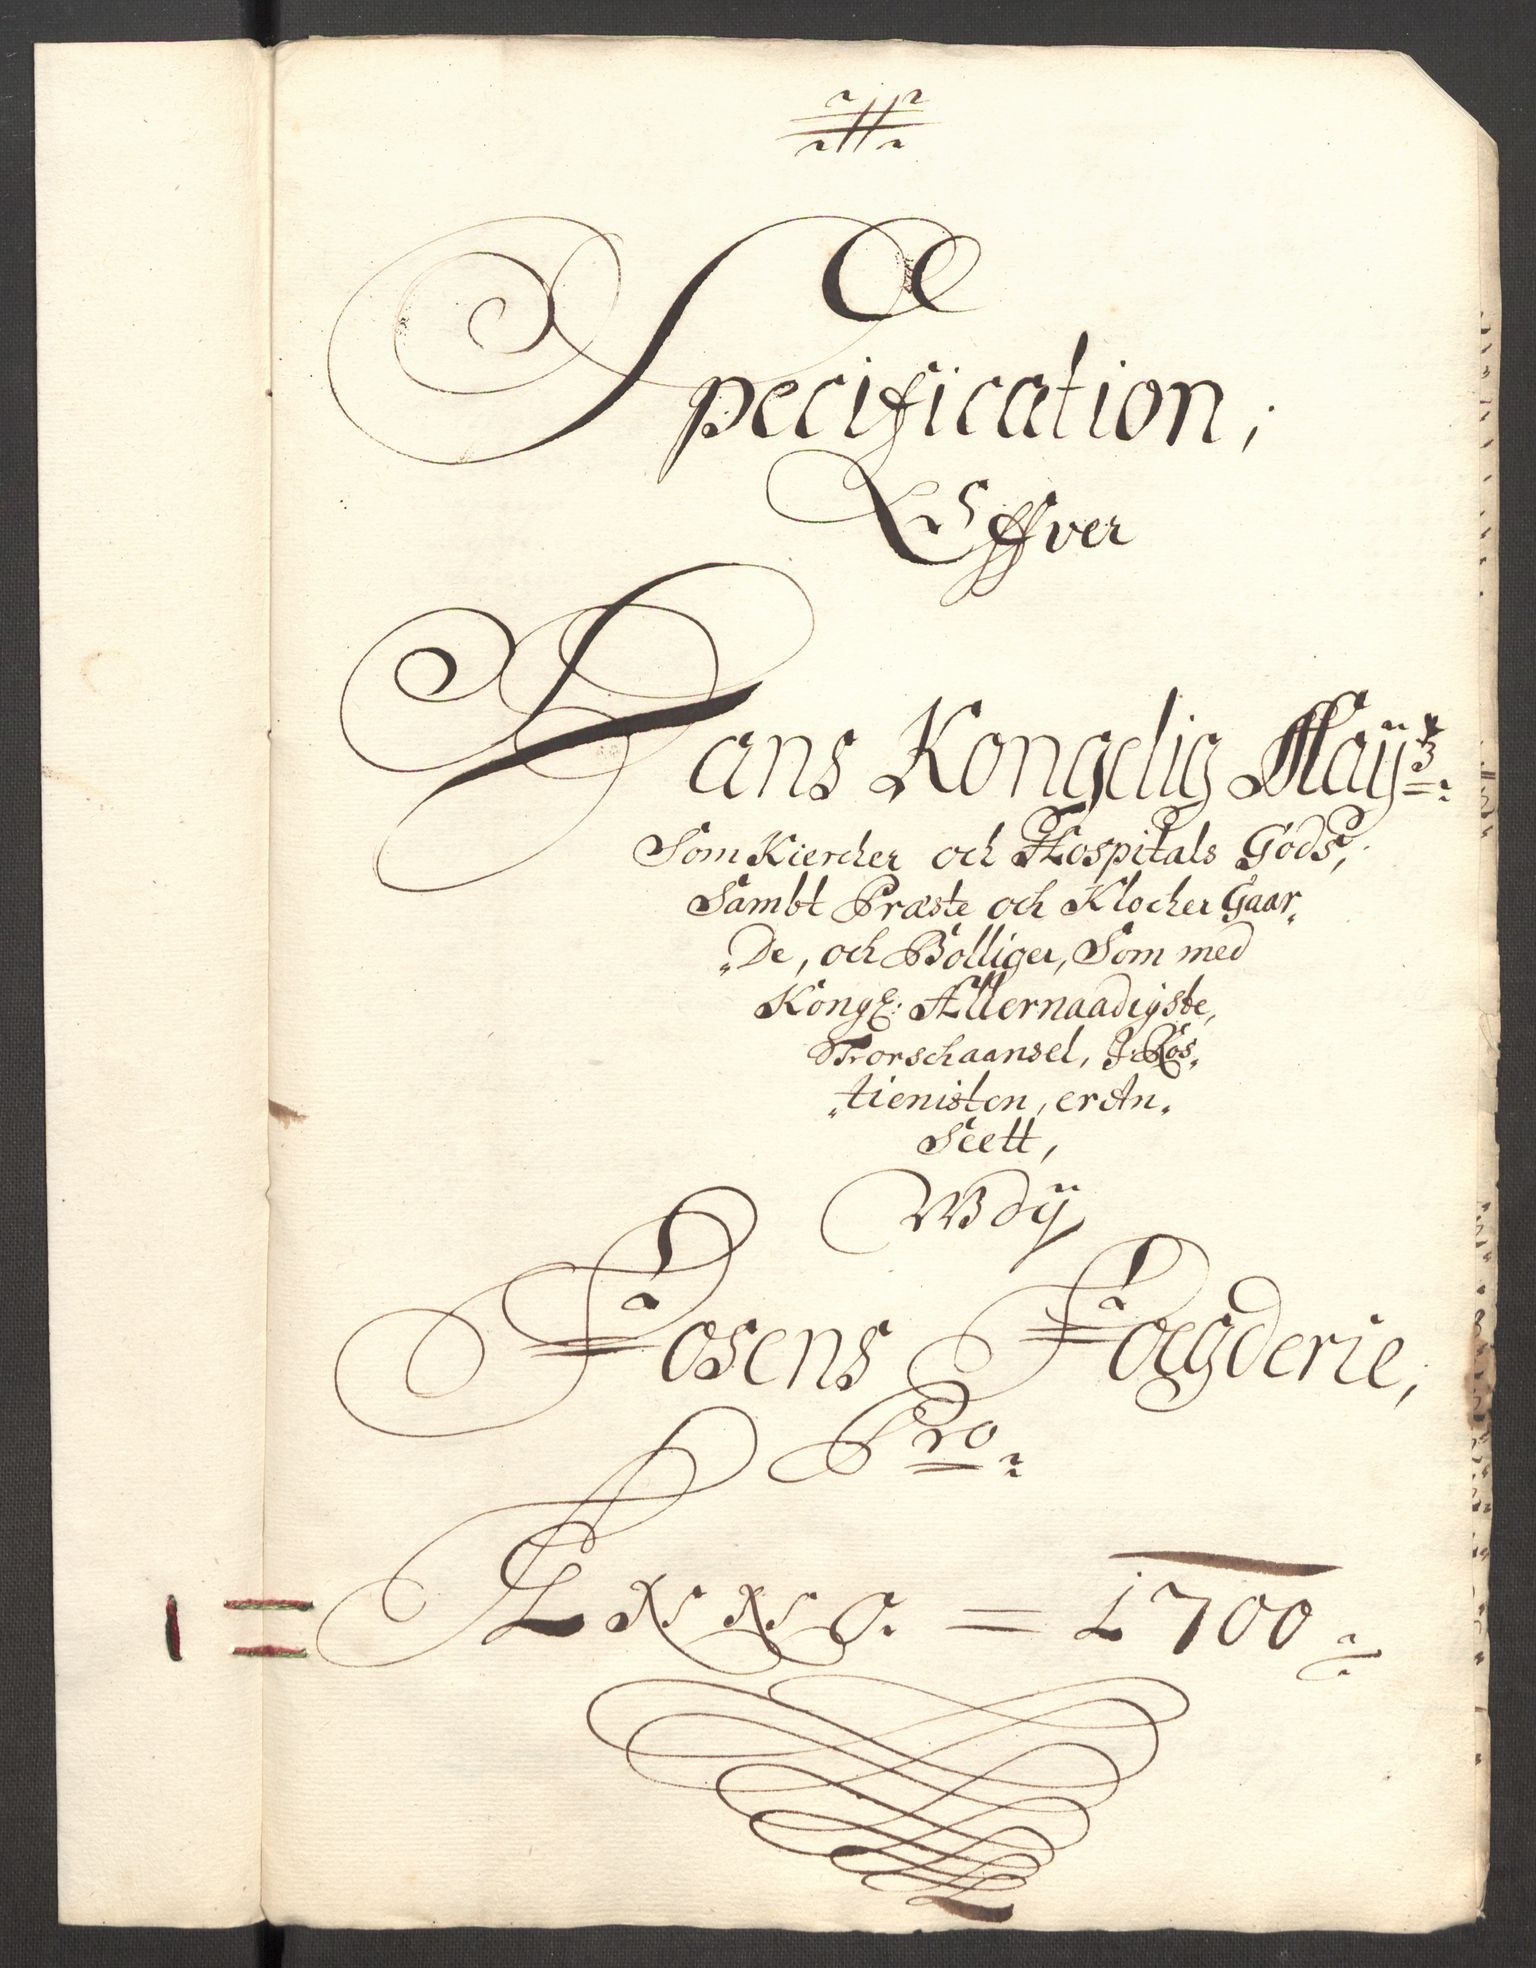 Specification,
Offver
Hans Kongelig Maÿtz
Som Kiercher och Hospitals Gods,
Sambt Præste och Klocher Gaar
De, och Bolliger, Som med
Kongl: Allernaadigste,
Forschaansel, J: Ros
tienisten, er An
Seett,
Wdÿ
Fosens Foegderie,
Pro
A 1700